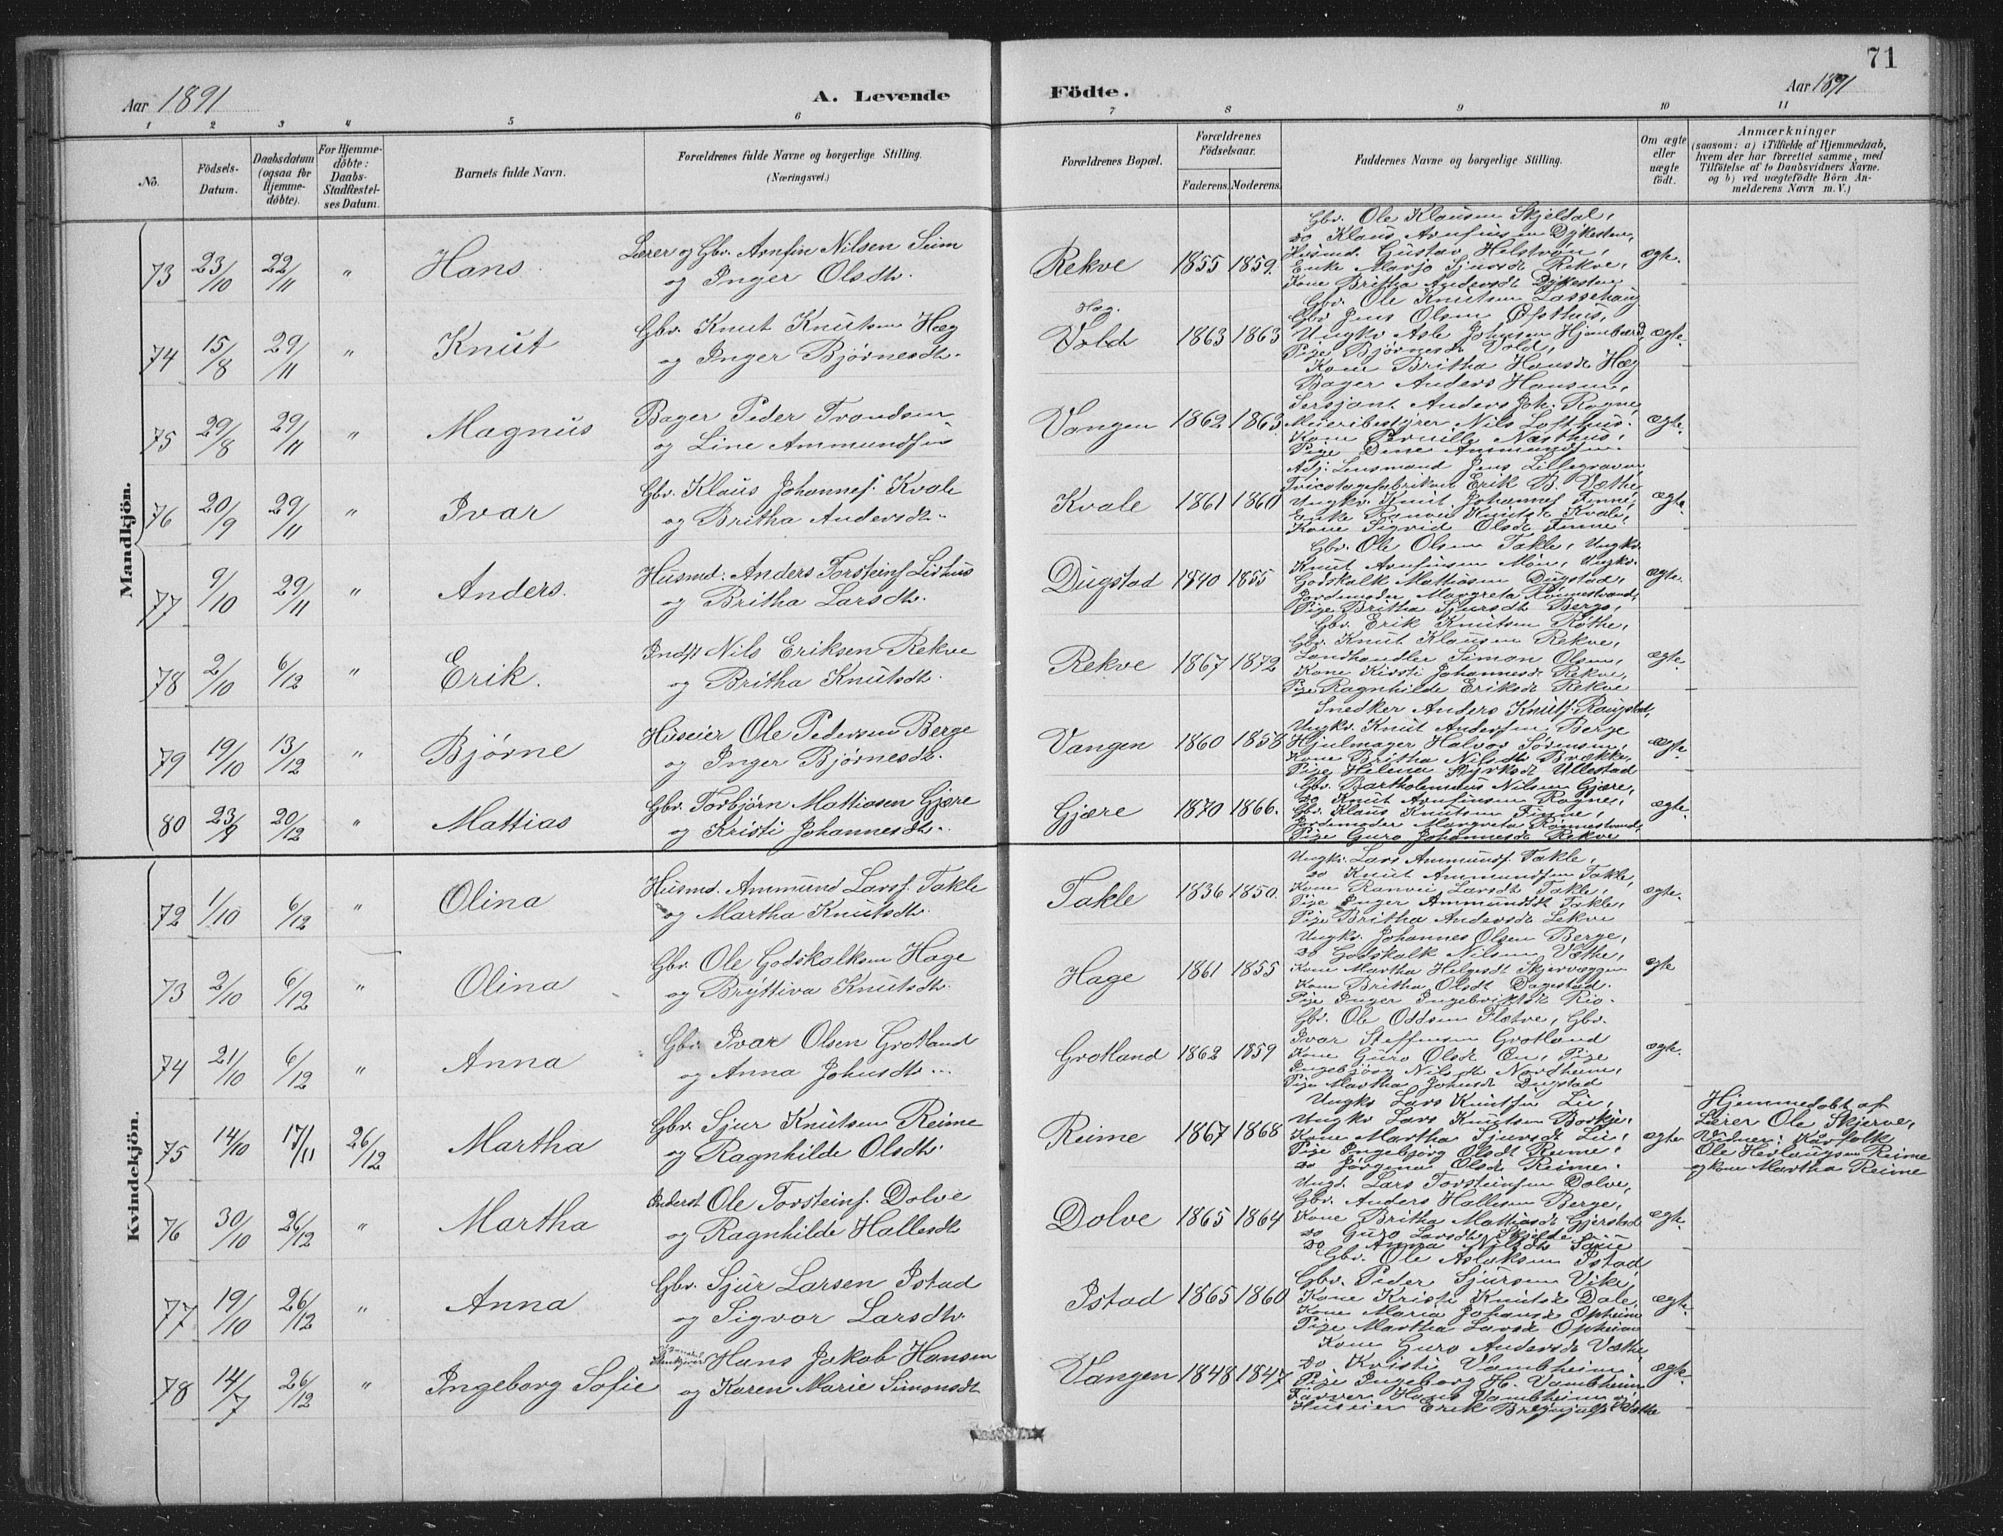 71
Aar 1891
A. Levende Födte.
Aar 1891
1 2 3 4 5 6 7 8 9 10 11
No.
Födsels-Datum.
Daabsdatum (ogsaa for Hjemme-döbte).
For Hjemme-döbte: Daabs-Stadfæstel-ses Datum.
Barnets fulde Navn.
Forældrenes fulde Navne og borgerlige Stilling.
(Næringsvei.)
Forældrenes Bopæl.
Forældrenes Födselsaar.
Faderens. Moderens.
Faddernes Navne og borgerlige Stilling.
Om ægte eller uægte födt.
Anmærkninger
(saasom: a) i Tilfælde af Hjemmedaab,
hvem der har forrettet samme, med
Tilföielse af to Daabsvidners Navne.
og b) ved uægtefödte Börn An-
melderens Navn m.V.)
Mandkjön.
73 23/10 22/11 " Hans. Lærer og Gbr. Arnfin Nilsen Seim og Inger Olsdtr. Rekve 1855 1859. ægte.
Gbr. Ole Klausen Skjeldal,
do Klaus Arnfinsen Dykesten,
Husmd. Gustav Helstrøm,
Enke Marjo Sjursdt Rekve,
Kone Britha Andersdt Dykesten
74 15/8 29/11 " Knut Gbr. Knut Knutsen Hæg og Inger Bjørnesdtr. Hæg. Vold 1863 1863 ægte.
Gbr. Ole Knutsen Lassehaug
Gbr Jens Olsen Østhus,
Ungkr Asle Johnsen
Pige Bjørnesdt Vold,
Kone Britha Hansdt Hæg
75 29/8 29/11 " Magnus Bager Peder Trondsen og Line Ammundsen Vangen 1862 1863. ægte.
Bager Anders Hansen,
Sersjant Anders Joh. Rogne,
Meieribestyrer Nils Lofthus.
Kone Pernille Næsthus,
Pige Dine Ammundsen.
76 20/9 29/11 " Ivar Gbr. Klaus Johannes. Kvale og Britha Andersdtr. Kvale 1861 1860 ægte.
Adj. Lensmand Jens Lillegraven
Tricotagefabrikør Erik B. Væthe,
Ungkr. Knut Johannes Finne,
Enke Ranvei Knutsdt Kvale,
Kone Sigrid Olsdt Finne
77 9/10 29/11 " Anders. Husmd. Anders Torsteins. Lidhus og Britha Larsdtr. Dugstad 1840 1855 ægte.
Gbr. Ole Olsen Takle, Ungkr.
Knut Arnfinsen Møn, Ungkr.
Godskalk Mathiasen Dugstad,
Jordemoder Margreta Rønnestrand,
Pige Britha Sjursdt Berge,
78 2/10 6/12 " Erik. Indst Nils Eriksen Rekve og Britha Knutsdtr. Rekve 1867 1872 ægte.
Gbr. Erik Knutsen Røthe,
Gbr Knut Klausen Rekve,
Landhandler Simon Olsen,
Kone Kirsti Johannesdt Rekve,
Pige Ragnhilde Eriksdt Rekve
79 19/10 13/12 " Bjørne Huseier Ole Pedersen Berge og Inger Bjørnesdtr. Vangen 1860 1858 ægte.
Snedker Anders Knuts. Rangstad,
Ungkr. Knut Anderssen Berge
Hjulmager Halvor Sørensen,
Kone Britha Nilsdt Brække,
Pige Helena Styrksdt Ullestad
80 23/9 20/12 " Mattias Gbr. Torbjørn Mattiasen Gjære og Kristi Johannesdtr. Gjære 1870 1866. ægte.
Gbr. Bartholomæus Nilsen Gjære,
do Knut Arnfinsen Rogne,
Gbr. Klaus Knutsen Finne,
Jordemoder Margreta Rønnestrand,
Pige Guro Johannesdt Rekve
Kvindekjön.
72 1/10 6/12 " Olina Husmd. Ammund Larss. Takle og Martha Knutsdtr. Takle 1836 1850. ægte.
Ungkr. Lars Ammunds. Takle,
do Knut Ammundsen Takle,
Kone Ranvei Larsdt Takle,
Pige Inger Ammundsdt Takle,
Pige Britha Andersdt Lekve
73 2/10 6/12 " Olina Gbr. Ole Godskalksen Hage og Bryttiva Knutsdtr. Hage 1861 1855 ægte
Ungkr. Johannes Olsen Berge,
do Godskalk Nilsen Væthe,
Kone Martha Helgesdt Skjervæggen
Kone Britha Olsdt Dagestad.
Pige Inger Ingebriktsdt Rio.
74 21/10 6/12 " Anna Gbr. Ivar Olsen Grotland og Anna Johnsdtr. Grotland 1862 1859 ægte.
Gbr. Ole Oddsen Flætve, Gbr.
Ivar Steffensen Grotland
Kone Guro Olsdt Øn, Pige
Ingebjørg Nilsdt Nordheim,
Pige Martha Johnsdt Dugstad
75 14/10 17/11 26/12 Martha Gbr. Sjur Knutsen Reime og Ragnhilde Olsdtr. Reime 1867 1868 ægte
Ungkr Lars Knutsen Lie,
Ungkr Lars Knutsen Borkje,
Kone Martha Sjursdt Lie,
Pige Ingebjørg Olsdt Reime,
do Jørgina Olsdt Reime.
Hjemmedøbt af
Lærer Ole Skjerve,
Vidner: Kårfolk
Ole Herlaugsen Reime
og kone Martha Reime
76 30/10 26/12 " Martha Inderst Ole Torsteins. Dolve og Ragnhilde Hallesdtr Dolve 1865 1864 ægte.
Ungd. Lars Torsteinsen Dolve,
Gbr. Anders Hallesen Berge,
Kone Britha Mattiasdt Gjerstad
do Guro Larsdtr Skjelde
do Anna Nilsdtr Saue
77 19/10 26/12 " Anna Gbr. Sjur Larsen Istad og Sigvor Larsdtr. Istad 1865 1860 ægte.
Gbr. Ole Aslaksen Istad
Gbr. Peder Sjursen Vike,
Kone Kristi Knutsdt Dale,
Kone Maria Johansdt Opheim
Pige Martha Larsdt Opheim
78 14/7 26/12 " Ingeborg Sofie Hans Jakob Hansen og Karen Marie Simonsdt Vangen 1848 1847 ægte.
Kone Guro Andersdt Væthe,
do Kristi Vambheim
Pige Ingeborg H. Vambheim
Farver Hans Vambheim og
Huseier Erik Væthe